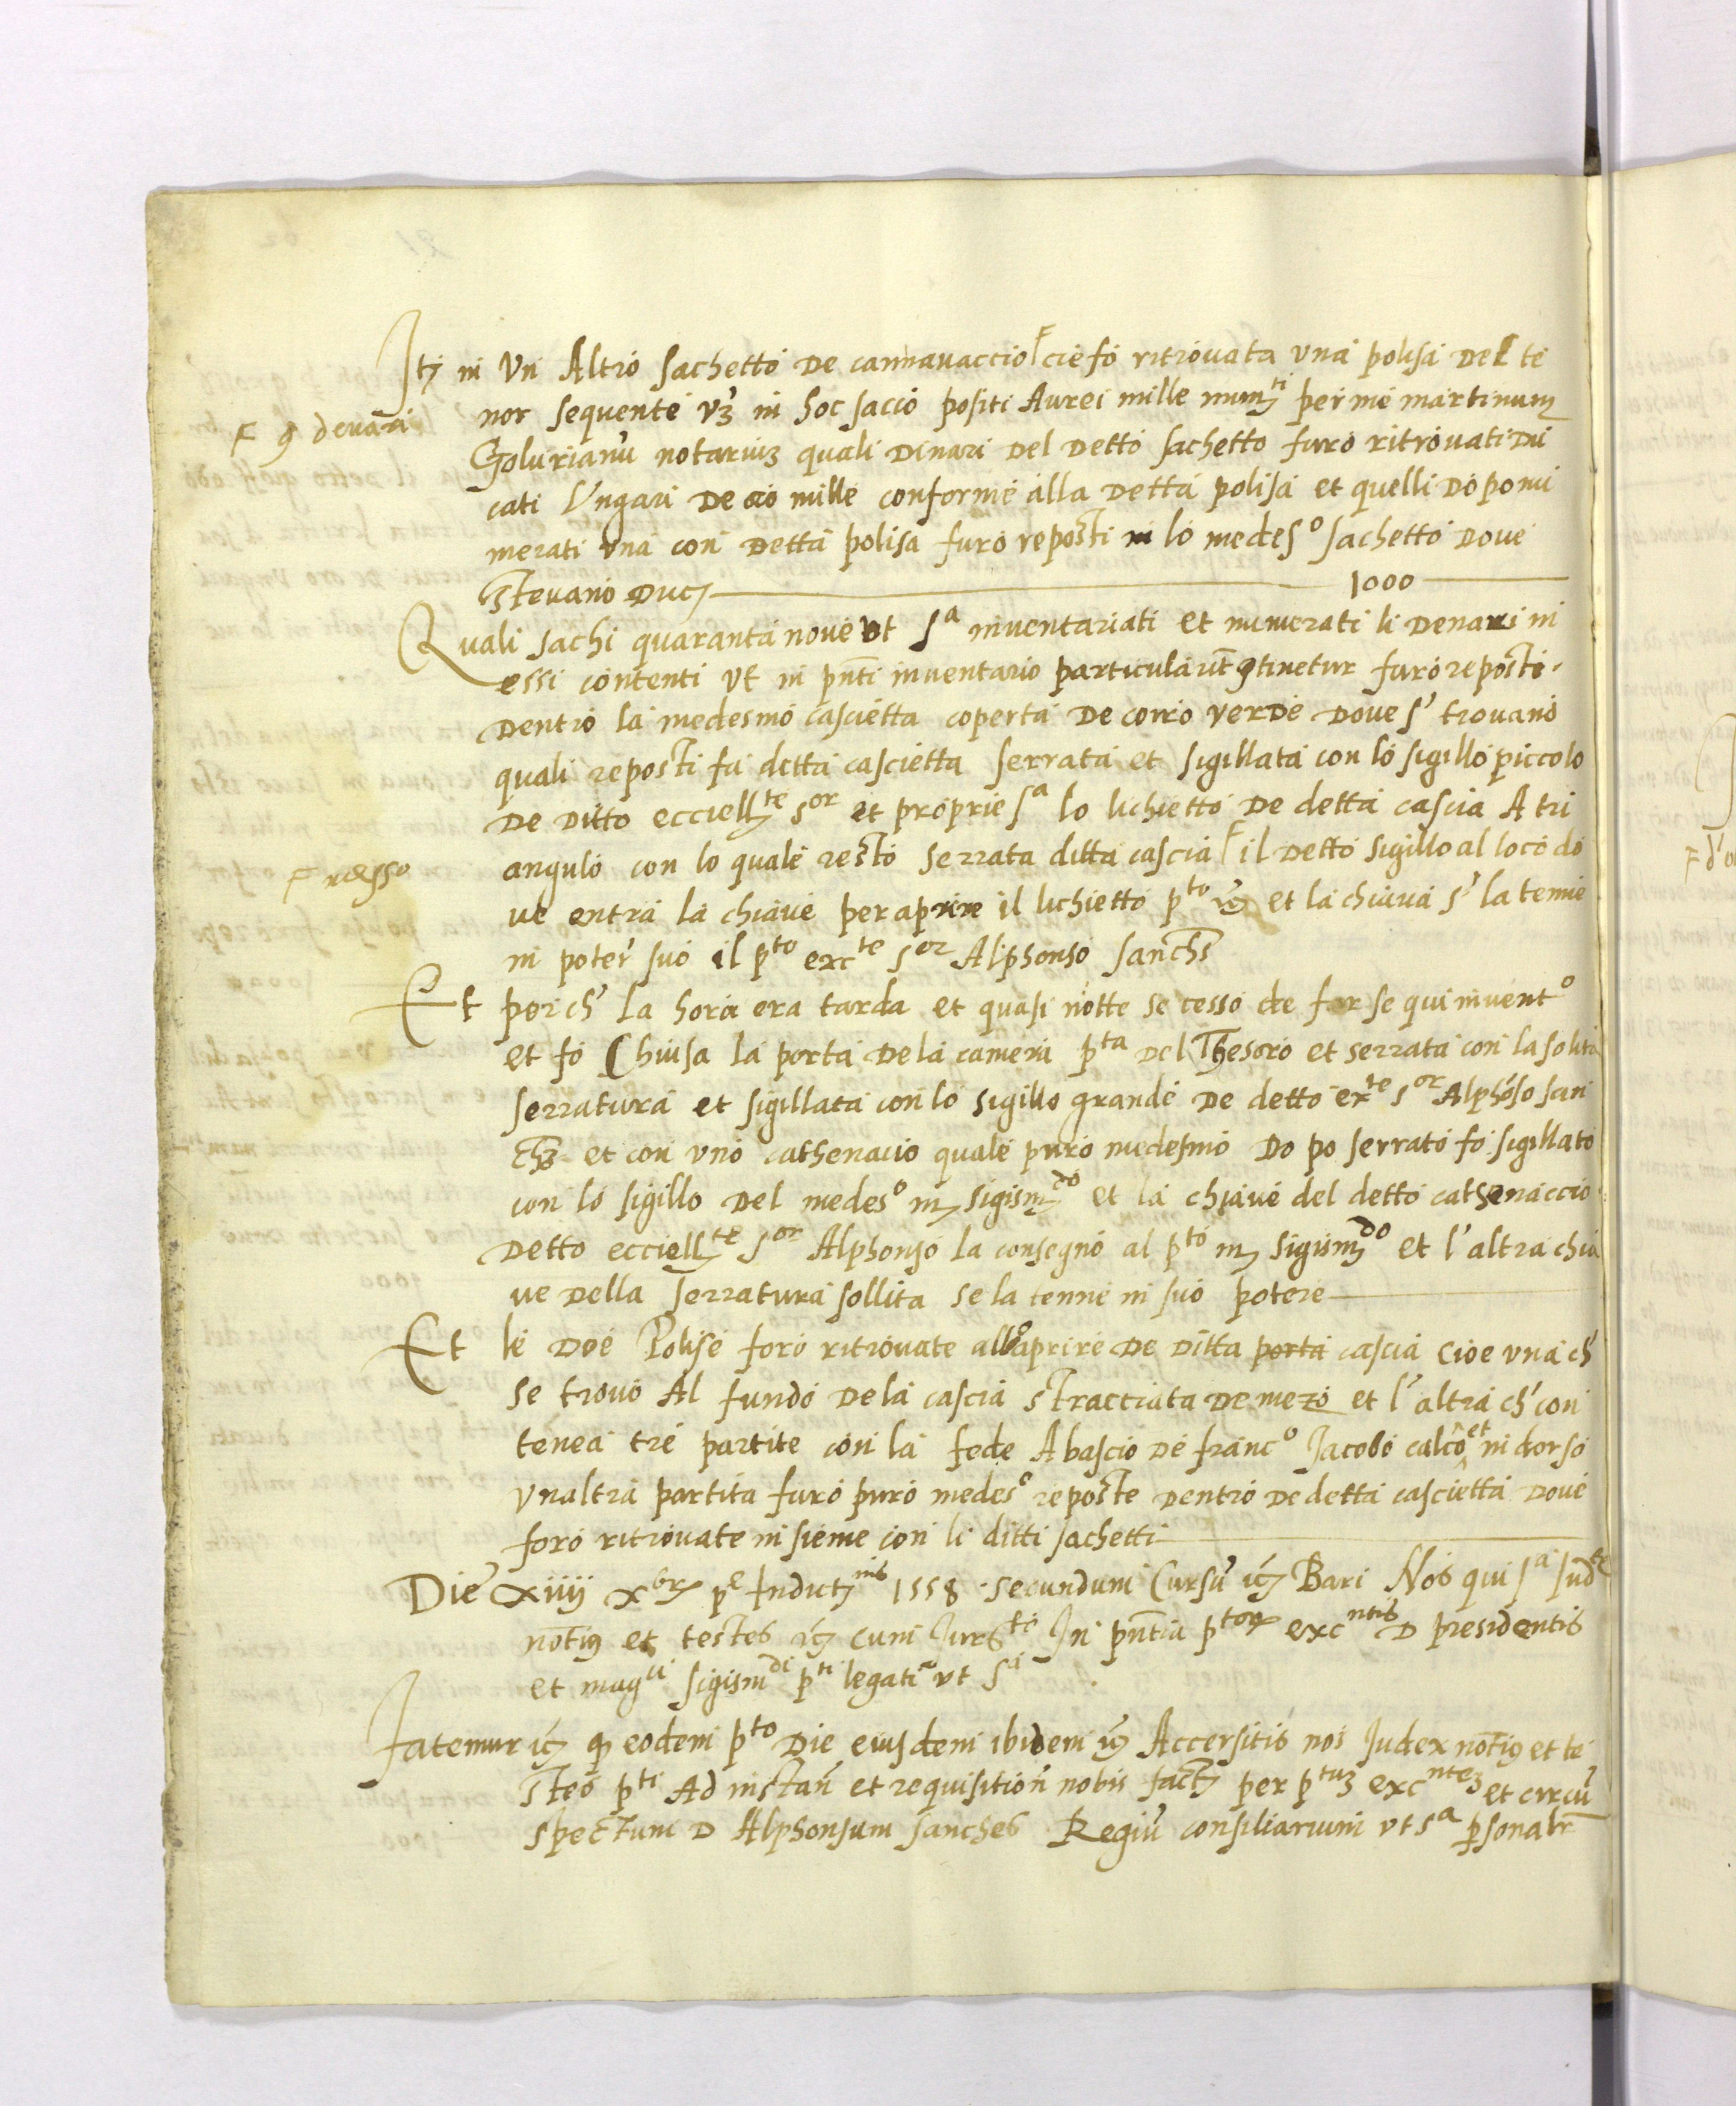 Itȝ in Un Altro sachetto de cannavaccio ͡ cie fo ritrovata una polisa del te
nor sequente vȝ in hoc sacco positi Aurei mille numȝti per me martinum
F 9 denari
Golurianū notariuȝ quali dinari del detto sachetto furo ritrovati du
cati Ungari de oro mille conforme alla detta polisa et quelli dopo nu
merati una con detta polisa furo reposti in lo medeso sachetto dove
stevano ducȝ 1000
Quali sachi quaranta nove ut sa inventariati et numerati li denari in
essi contenti ut in pn̄ti inventario particularr̄ 9tinetur furo reposti
dentro la medesmo cascietta coperta de corio verde dove s' trovano
quali reposti fu detta cascietta serrata et sigillata con lo sigillo piccolo
de ditto eccellȝte sor et proprie sa lo luchietto de detta cascia A tri
angulo con lo quale resto serrata ditta cascia F il detto sigillo al loco do
F messo
ve entra la chiave per aprire il luchietto pto et la chiava s' la tenne
in poter' suo il pto excte sor Alphonso sanchs
Et perch' la hora era tarda et quasi notte se cesso de far se qui inventо
et fo Chiusa la porta dela camera pta del Thesoro et serrata con la solita
serratura et sigillata con lo sigillo grande de detto exte sor Alphōso san
chȝ et con uno cathenacio quale puro medesmo do po serrato fo sigillato
con lo sigillo del medeso mȝ sigismȝdo et la chiave del detto cathenaccio
detto eccellȝte sor Alphonso la consegno al pto mȝ sigismȝdo et l'altra chia
ve della serratura sollita se la tenne in suo potere
Et le doe Polise foro ritrovate allo aprire de ditta porta cascia cioe una ch'
se trovo Al fundo dela cascia stracciata de mezo et l'altra ch' con
tenea tre partite con la fede Abascio de franco Jacobo calcō et in dorso
unaltra partita furo puro medeso reposte dentro de detta cascietta dove
foro ritrovate insieme con li ditti sachetti
Die xiiij xbrȝ pe Indictȝnis 1558 secundum Cursū Bari Nos qui sa Judte
not9 et testes cum Jur6to In pn̄tia ptorȝ excntis D presidentis
et magci sigismdi pti legati ut sa
Fatemur q eodem pto die eiusdem ibidem Accersitis nos Judex not9 et te
stes pti Ad instan̄ et requisition̄ nobis factȝ per ptuȝ excnteȝ et circū
spectum D Alphonsum sanches Regiū consiliarium ut sa psonalr̄